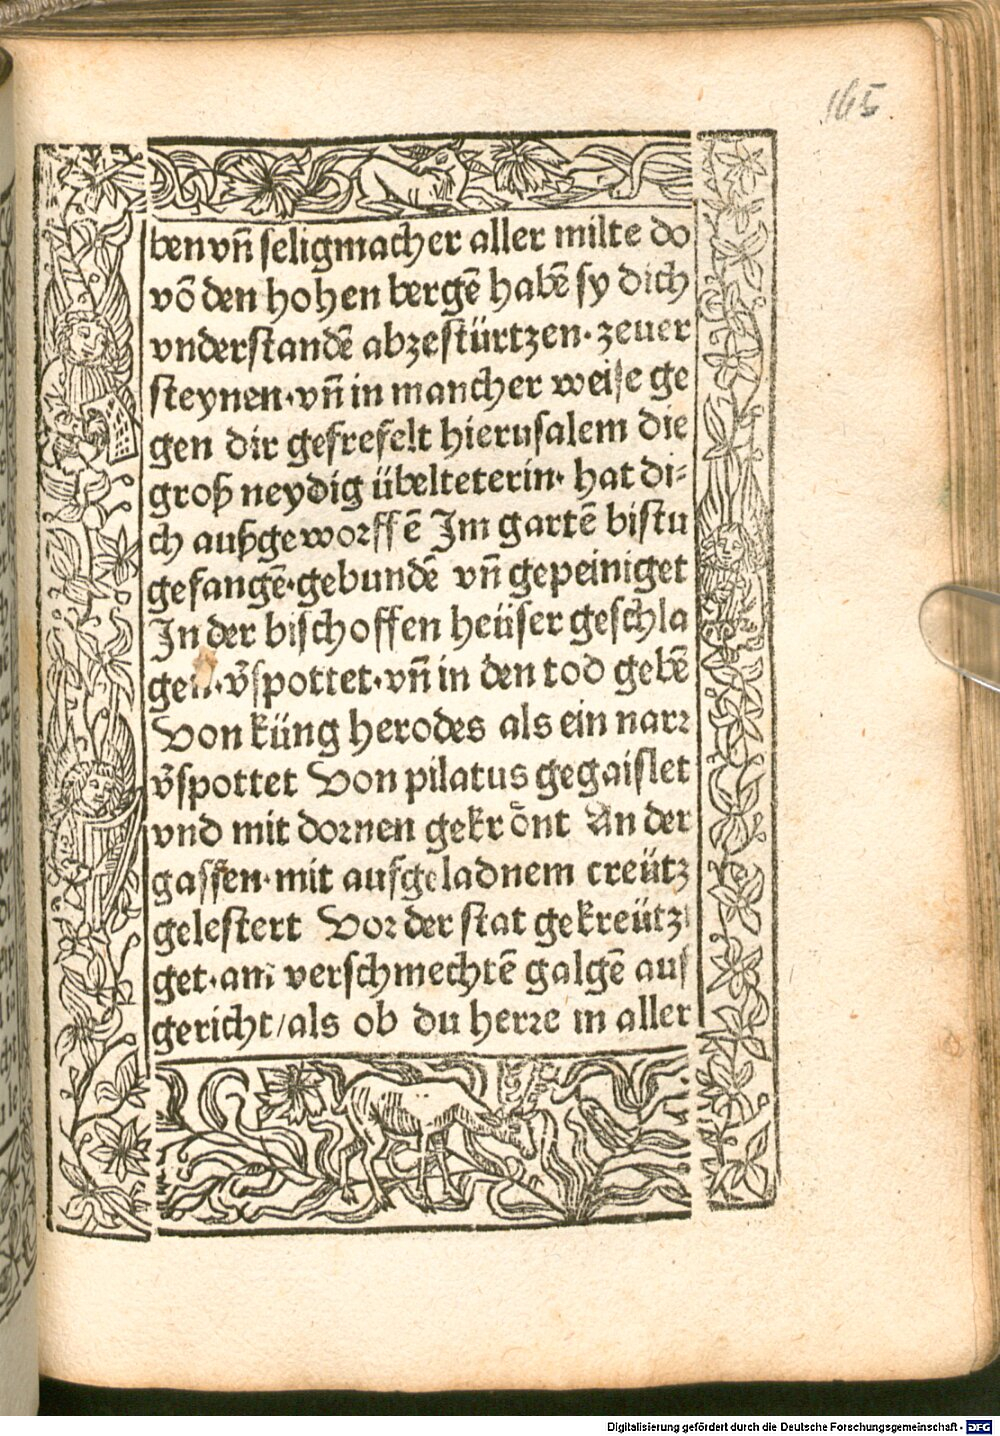 165
ben vñ seligmacher aller milte do
võ den hohen bergẽ habẽ sy dich
vnderstandẽ abzestürtzen· zeuer
steynen· vñ in mancher weise ge
gen dir gefrefelt hierusalem die
groß neydig übelteterin· hat di⸗
ch außgeworffẽ Im gartẽ bistu
gefangẽ· gebundẽ vñ gepeiniget
In der bischoffen heüser geschla
gen· v̄spottet· vñ in den tod gebẽ
Von küng herodes als ein narr
v̄spottet Von pilatus gegaislet
vnd mit dornen gekrönt An der
gassen· mit aufgeladnem creütz
gelestert Vor der stat gekreützi
get· am verschmechtẽ galgẽ auf
gericht/ als ob du herre in aller
Digitalisierung gefördert durch die Deutsche Forschungsgemeinschaft - DFG